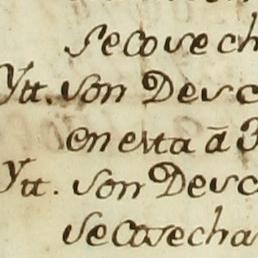 Secosech
Ytt. son Desc
en esta ā 3
Ytt. son Desc
Secosecha